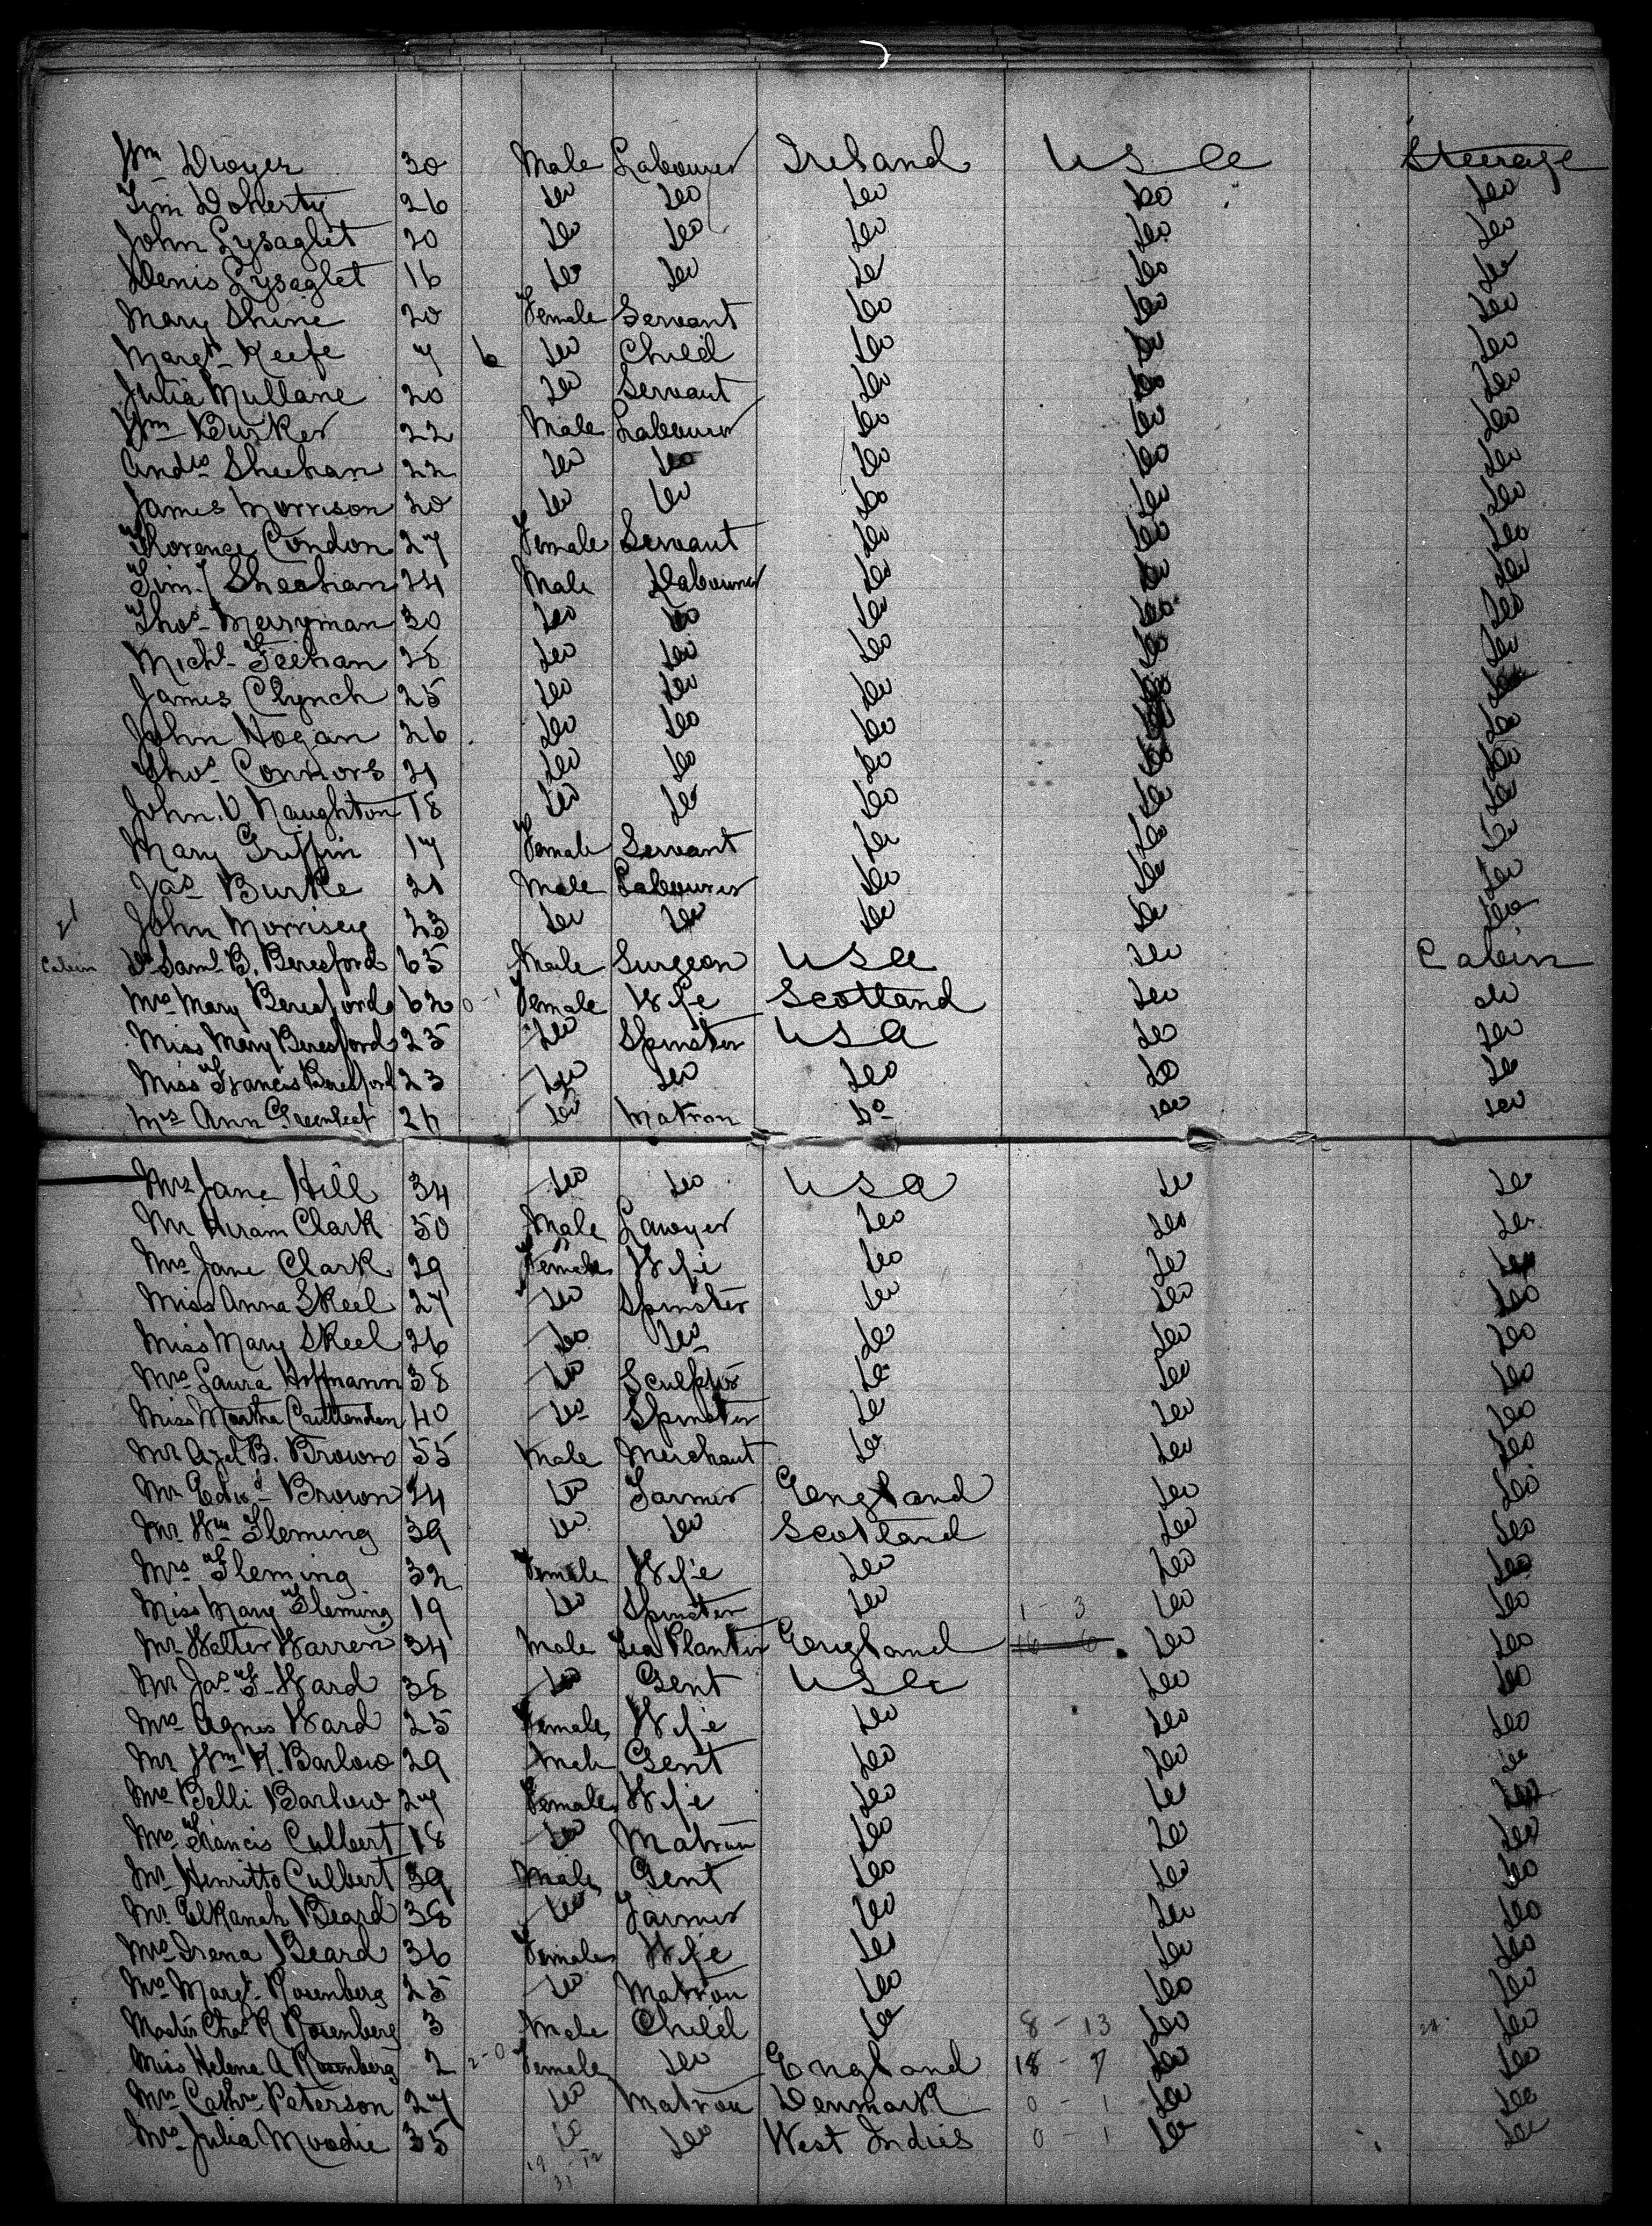 Wm Dwyer 30 Male Labourer Ireland USA Steerage
Tim Doherty 26 Do Do Do Do Do
John Lysaght 20 Do Do Do Do Do
Denis Lysaght 16 Do Do Do Do Do
Mary Shine 20 Female Servant Do Do Do
Margt Keefe 7 6 Do Child Do Do Do
Julia Mullane 20 Do Servant Do Do Do
Wm Burker 22 Male Labourer Do Do Do
Andw Sheehan 22 Do Do Do Do Do
James Morrison 20 Do Do Do Do Do
Florence Condon 27 Female Servant Do Do Do
Tim Sheehan 24 Male Labourer Do Do Do
Thos Merryman 30 Do Do Do Do Do
Michl Feehan 28 Do Do Do Do Do
James Clynch 25 Do Do Do Do Do
John Hogan 26 Do Do Do Do Do
Thos Connors 21 Do Do Do Do Do
John O Naughton 18 Do Do Do Do Do
Mary Griffin 17 Female Servant Do Do Do
Jas Burke 21 Male Labourer Do Do Do
John Morrisey 23 Do Do Do Do Do
Cabin Dr Saml B. Beresford 65 Male Surgeon USA Do Cabin
Mrs Mary Beresford 62 0-1 Female Wife Scotland Do Do
Miss Mary Beresford 25 Do Spinster USA Do Do
Miss Francis Beresford 23 Do Do Do Do Do
Mrs Ann Greenleef 26 Do Matron Do Do Do
Mrs Jane Hill 34 Do Do USA Do Do
Mr Hiram Clark 50 Male Lawyer Do Do Do
Mrs Jane Clark 29 Female Wife Do Do Do
Miss Anna Skeel 27 Do Spinster Do Do Do
Miss Mary Skeel 26 Do Do Do Do Do
Mrs Laura Hoffmann 38 Do Sculptor Do Do Do
Miss Martha Cauttenden 40 Do Spinster Do Do Do
Mr Azel B. Brown 55 Male Merchant Do Do Do
Mr Edwd Brown 24 Do Farmer England Do Do
Mr Wm Fleming 39 Do Do Scotland Do Do
Mrs Fleming 32 Female Wife Do Do Do
Miss Mary Fleming 19 Do Spinster Do 1-3 Do Do
Mr Walter Warren 34 Male Tea Planter England 16 6 Do Do
Mr Jas F. Ward 38 Do Gent USA Do Do
Mrs Agnes Ward 25 Female Wife Do Do Do
Mr Wm K. Barlow 29 Male Gent Do Do Do
Mrs Belli Barlow 27 Female Wife Do Do Do
Mrs Francis Culbert 18 Do Matron Do Do Do
Mr Henritto Culbert 39 Male Gent Do Do Do
Mr Elkanah Beard 38 Do Farmer Do Do Do
Mrs Irena Beard 36 Female Wife Do Do Do
Mrs Margt Rosenberg 25 Do Matron Do Do Do
Master Chas R Rosenberg 3 Male Child Do 8-13 Do Do
Miss Helena A Rosenberg 2 2-0 Female Do England 18-7 Do Do
Mrs Cathn Peterson 27 Do Matron Denmark 0-1 Do Do
Mrs Julia Moodie 35 Do Do West Indies 0-1 Do Do
19 12
31